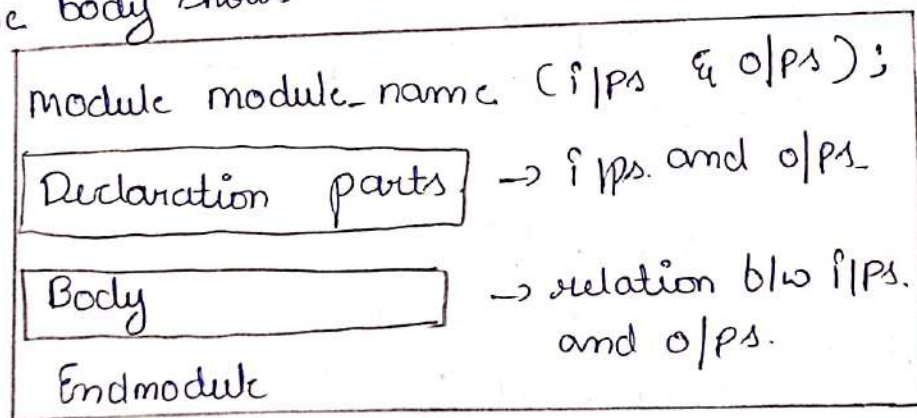 body
module module_name (i/ps & o/ps);
Declaration parts → i/ps. and o/ps
Body → relation b/w i/ps.
and o/ps.
Endmodule